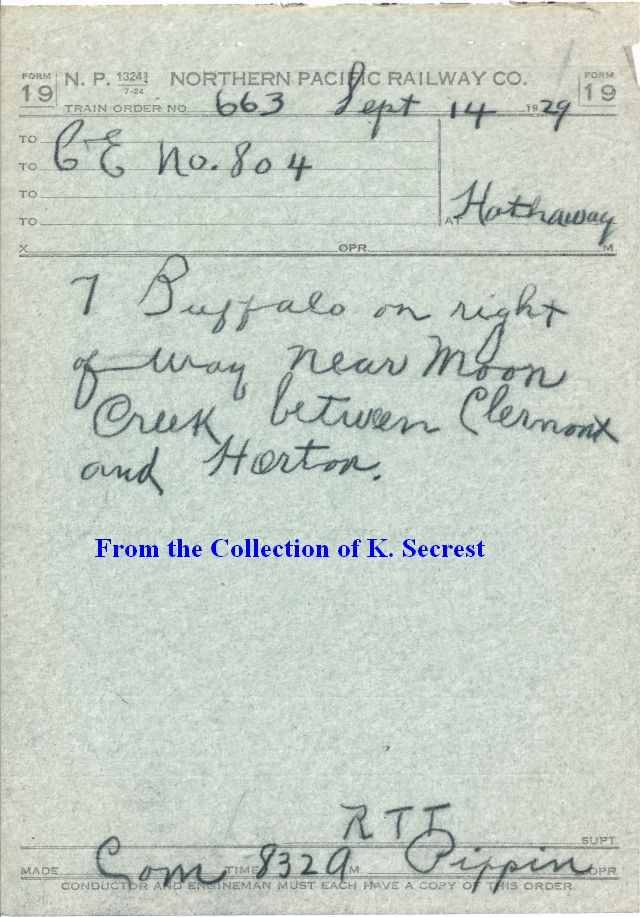 FORM 19 N. P. 1324¾ 7-24 NORTHERN PACIFIC RAILWAY CO. FORM 19
TRAIN ORDER NO. 663 Sept 14 1929
TO
TO C&E No. 804
TO
TO AT Hathaway
X OPR. M
7 Buffalo on right
of way near Moon
Creek between Clermont
and Horton.
From the Collection of K. Secrest
R T T
SUPT
MADE Com TIME 832 A M. Pippin OPR
CONDUCTOR AND ENGINEMAN MUST EACH HAVE A COPY OF THIS ORDER.